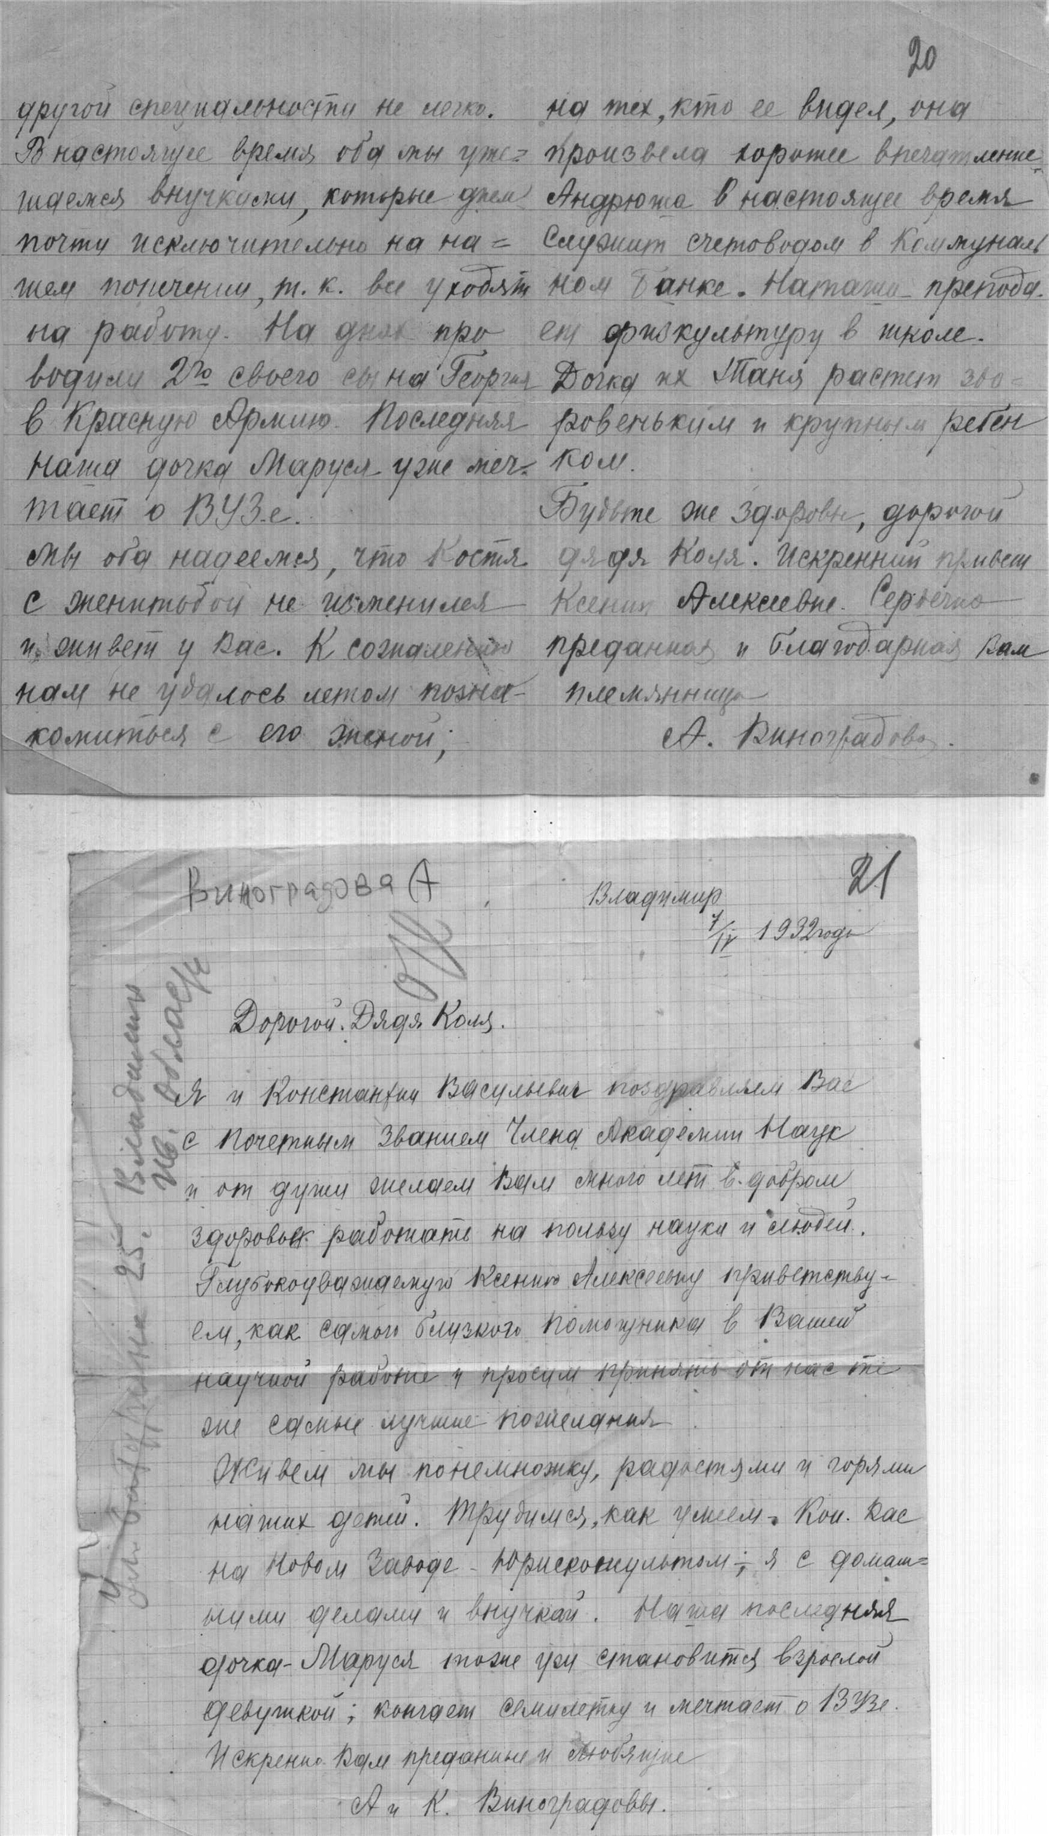 20
другой специальности не легко.
В настоящее время оба мы уте=
шаемся внучками, которые днем
почти исключительно на на=
шем попечении, т. к. все уходят
на работу. На днях про
водили 2го своего сына Георгия
в Красную Армию. Последняя
наша дочка Маруся уже меч-
тает о ВУЗ-е.
Мы оба надеемся, что Костя
с женитьбой не изменился
и живет у Вас. К сожалению
нам не удалось летом позна-
комиться с его женой;
на тех, кто ее видел, она
произвела хорошее впечатление.
Андрюша в настоящее время
служит счетоводом в Коммуналь
ном Банке. Наташа препода-
ет физкультуру в школе.
Дочка их Таня растет здо=
ровеньким и крупным ребен
ком.
Будьте же здоровы, дорогой
дядя Коля. Искренний привет
Ксении Алексеевне. Сердечно
преданная и благодарная Вам
племянница
А. Виноградова.
21
Виноградова А
Владимир
7/IV 1932 года
Владимир
Ив. области
25.
Дорогой Дядя Коля.
Я и Константин Васильевич поздравляем Вас
с почетным званием Члена Академии Наук
и от души желаем Вам много лет в добром
здоровье работать на пользу науки и людей.
Глубокоуважаемую Ксению Алексеевну приветству-
ем, как самого близкого помощника в Вашей
научной работе и просим принять от нас те
же самые лучшие пожелания.
Живем мы понемножку, радостями и горями
наших детей. Трудимся, как умеем. Кон. Вас
на Новом Заводе - Юрисконсультом; я с домаш=
ними делами и внучкой. Наша последняя
дочка - Маруся тоже уж становится взрослой
девушкой; кончает семилетку и мечтает о ВУЗе.
Искренно Вам преданные и любящие
А и К. Виноградовы.